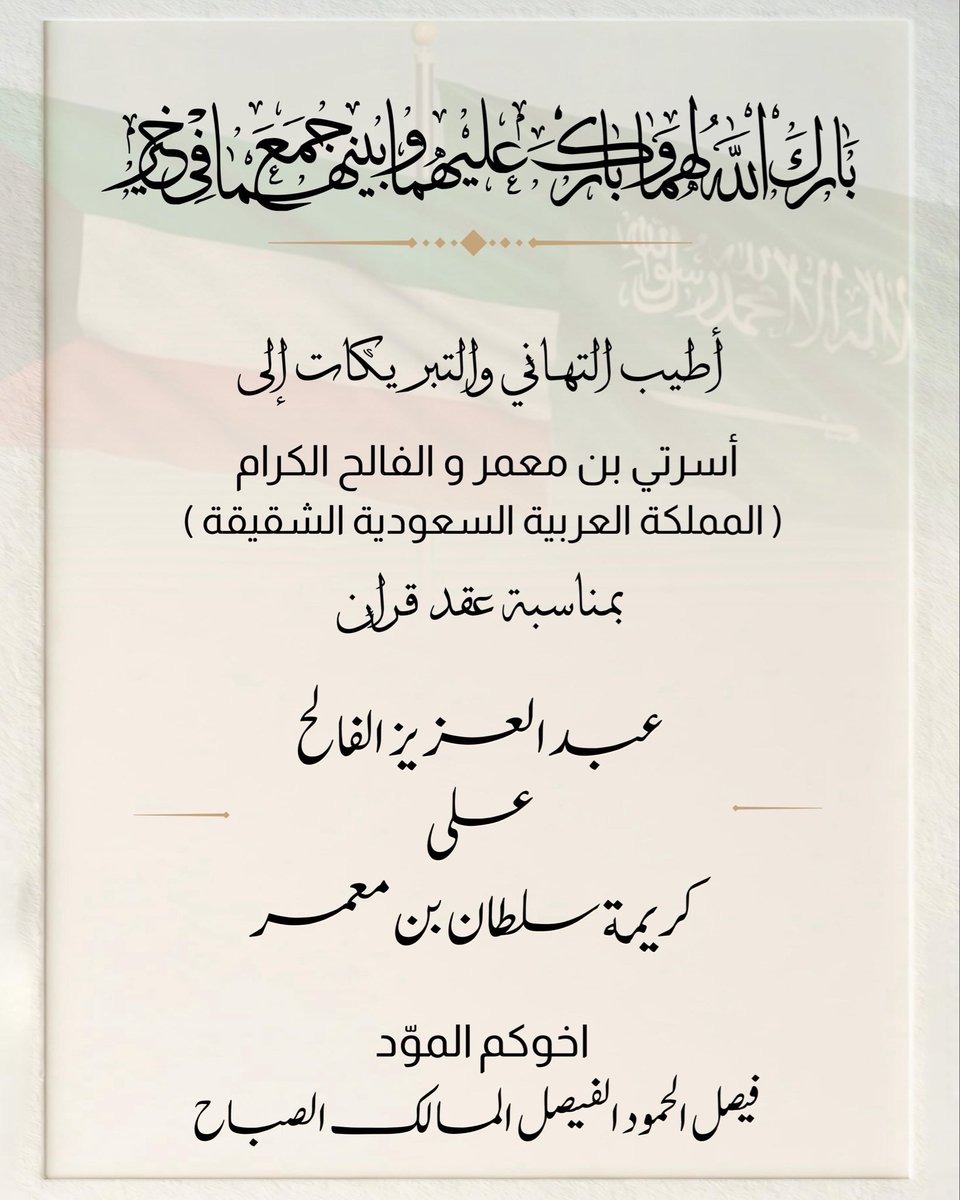 بَارَكَ اللَّهُ لهما وبارك عليهما وجمع بينهما في خير
لا إله إلا الله محمد رسول الله
أطيب التهاني والتبريكات إلى
أسرتي بن معمر و الفالح الكرام
( المملكة العربية السعودية الشقيقة )
بمناسبة عقد قران
عبدالعزيز الفالح
على
كريمة سلطان بن معمر
اخوكم الموّد
فيصل الحمود الفيصل المالك الصباح